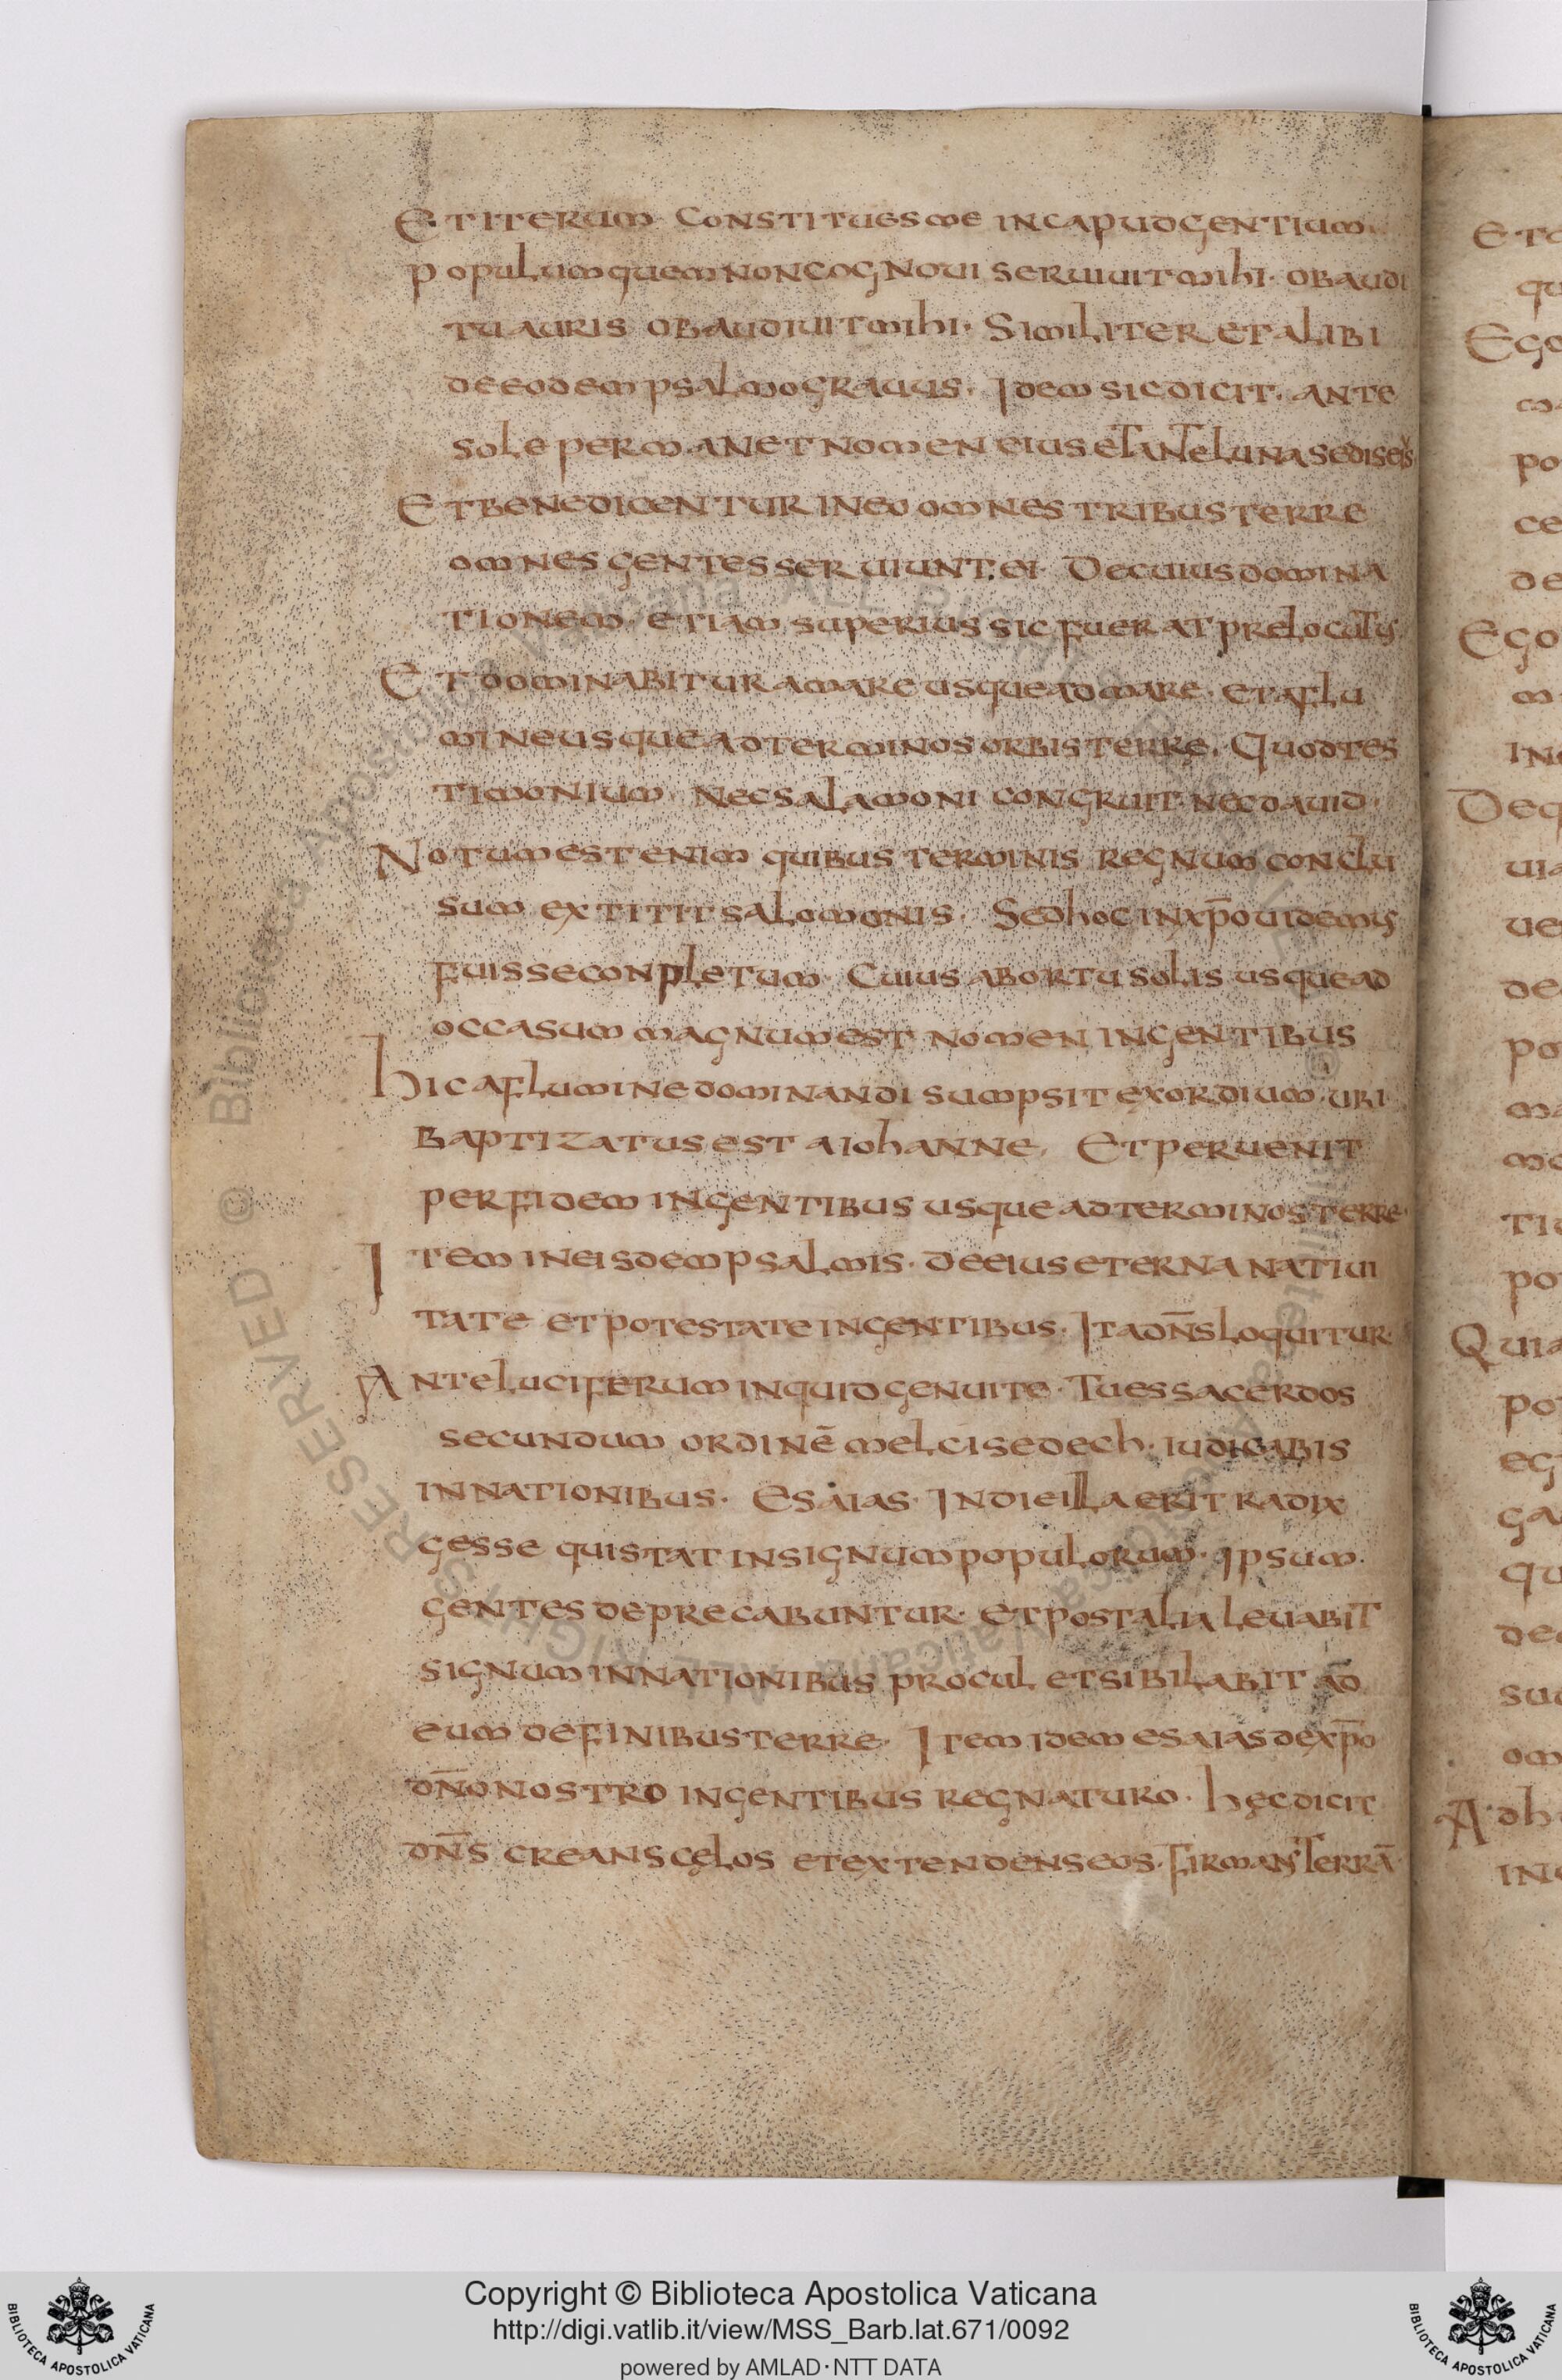 Et iterum. Constitues me in capud gentium.
populum quem non cognoui seruiuit mihi. obaudi
tu auris obaudiuit mihi. Similiter et alibi
de eodem psalmograuus. Idem sic dicit. ante
sole permanet nomen eius et ante luna sedis eius
Et benedicentur in eo omnes tribus terre
omnes gentes seruiunt ei. De cuius domina
tionem etiam superius sic fuerat prelocutus.
Et dominabitur a mare usque ad mare. et a flu
mine usque ad terminos orbis terre. Quod tes
timonium nec salamoni congruit nec dauid.
Notum est enim quibus terminis regnum conclu
sum extitit salomonis. Sed hoc in xp̄o uidemus
fuisse conpletum. Cuius ab ortu solis usque ad
occasum magnum est nomen in gentibus
hic a flumine dominandi sumpsit exordium. ubi
baptizatus est a iohanne. Et peruenit
per fidem in gentibus usque ad terminos terre.
Item in eisdem psalmis. de eius eterna natiui
tate et potestate in gentibus. Ita dn̄s loquitur.
Ante luciferum inquid genui te. Tu es sacerdos
secundum ordinē melcisedech. iudicabis
in nationibus. Esaias. In die illa erit radix
gesse qui stat in signum populorum. ipsum
gentes deprecabuntur. et post alia leuabit
signum in nationibus procul et sibilabit ad
eum de finibus terre. Item idem esaias de xp̄o
dn̄o nostro in gentibus regnaturo. hęc dicit
dn̄s creans cęlos et extendens eos. firmans terrā
Et
qu
Ego
ma
po
ce
de
Ego
m
in
Deq
uia
ue
de
po
ma
me
tiu
pot
Quia
pot
eg
ga
qu
de
su
om
Adh
in
Copyright © Biblioteca Apostolica Vaticana
http://digi.vatlib.it/view/MSS_Barb.lat.671/0092
powered by AMLAD·NTT DATA
BIBLIOTECA APOSTOLICA VATICANA
BIBLIOTECA APOSTOLICA VATICANA
© Biblioteca Apostolica Vaticana ALL RIGHTS RESERVED